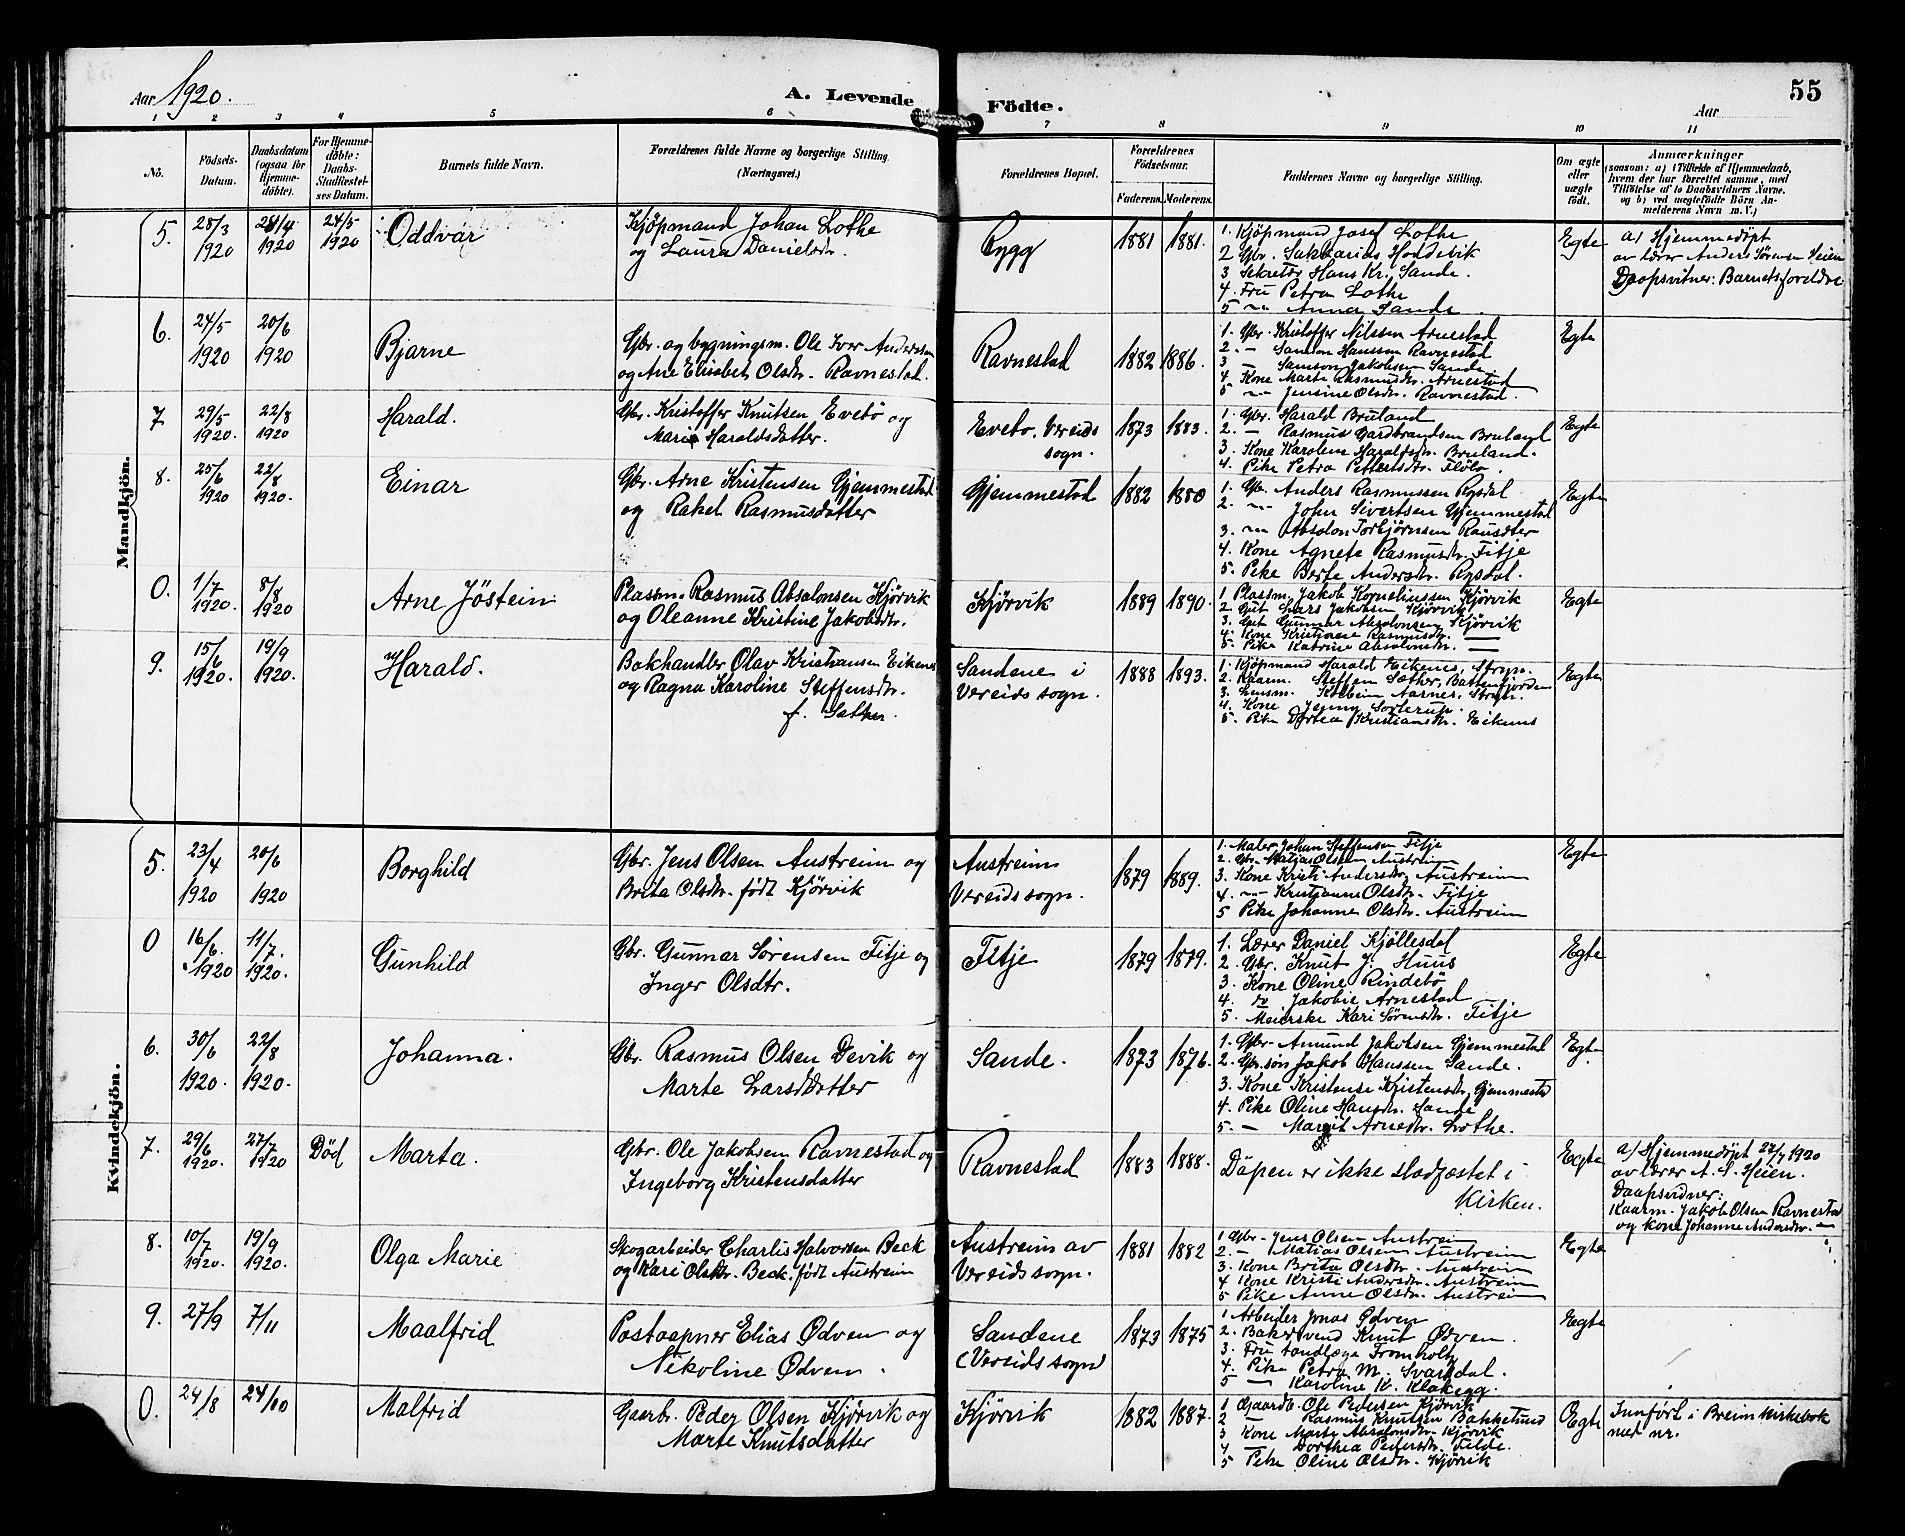 Aar 1920.
A. Levende Födte.
Aar
55
1 2 3 4 5 6 7 8 9 10 11
No.
Födsels-Datum.
Daabsdatum (ogsaa for Hjemmedöbte).
For Hjemmedöbte: Daabs-Stadfæstelses Datum.
Barnets fulde Navn.
Forældrenes fulde Navne og borgerlige Stilling. (Næringsvei.)
Forældrenes Bopæl.
Forældrenes Födselsaar.
Faderens. Moderens.
Faddernes Navne og borgerlige Stilling.
Om ægte eller uægte født.
Anmærkninger
(saasom: a) i Tilfælde af Hjemmedaab, hvem der har forrettet samme, med Tilføielse af to Daabsvidners Navne, og b) ved uægtefödte Börn Anmelderens Navn m. V.)
Mandkjön.
5. 28/3 1920 24/4 1920 24/5 1920 Oddvar
Kjöpmand Johan Lothe
og Laura Danielsdtr.
Rygg 1881 1881.
1. Kjöpmand Josef Lothe
2 Gbr. Sakkarias Hoddevik
3 Sekretær Hans Kr. Sande.
4. Fru Petra Lothe
5 -"- Anna Sande
Egte
a/ Hjemmedöpt
av lærer Anders Sörensen Heien
Daapsvitner: Barnets foreldre
6. 24/5 1920 20/6 1920 Bjarne
Gbr. og bygningsm. Ole Iver Anderssen
og Ane Elisabet Olsdtr. Ravnestad.
Ravnestad 1882 1886.
1. Gbr. Kristoffer Nilssen Arnestad
2. - Samson Hanssen Ravnestad
3 - Samson Jakobsen Sande
4. Kone Marte Rasmusdtr. Arnestad
5 -"- Jensine Olsdtr. Ravnestad.
Egte
7. 29/5 1920. 22/8 1920 Harald.
Gbr. Kristoffer Knutsen Evebö og
Marie Haraldsdatter.
Evebö, Vereids
sogn.
1873 1883.
1. Gbr. Harald Bruland
2. - Rasmus Gardbrandsen Bruland
3. Kone Karoline Haraldsdtr. Bruland.
4. Pike Petra Pettersdtr. Flölo.
Egte
8. 25/6 1920 22/8 1920. Einar
Gbr. Arne Kristensen Gjemmestad
og Rakel Rasmusdatter
Gjemmestad 1882 1880
1. Gbr. Anders Rasmussen Rygdal
2. -"- John Sivertsen Gjemmestad
3. -"- Absalon Torbjörnsen
4. Kone Agnete Rasmusdtr. Fitje
5. Pike Berte Andersdtr. Rygdal.
Egte
0. 1/7 1920. 8/8 1920 Arne Jöstein
Plassm. Rasmus Absalonsen Kjörvik
og Oleanne Kristine Jakobsdtr.
Kjörvik 1889 1890.
1 Plassm. Jakob Korneliussen Kjörvik
2 Gut Lars Jakobsen Kjörvik
3. Gut Gunnar Absalonsen Kjörvik
4. Kone Kristiane Rasmusdtr. —
5. Pike Katrine Absalonsdtr. —
Egte
9. 15/6 1920. 19/9 1920. Harald.
Bokhandler Olav Kristiansen Eikenes
og Ragna Karoline Steffensdtr.
f. Sæther.
Sandene i
Vereids sogn.
1888 1893.
1. Kjöpmand Harald Eikenes, Stryn.
2. Kaarm. Steffen Sæther, Battenfjorden
3. Lensm. Kolbein Aarnes, Stryn.
4. Kone Jenny Sorterup.
5. Pike Dortea Kristiansdtr. Eikenes
Egte
Kvindekjön.
5. 23/4 1920 20/6 1920 Borghild
Gbr. Jens Olsen Austreim og
Brita Olsdtr. født Kjörvik
Austreim
Vereidssogn.
1879 1889.
1. Maler Johan Steffensen Fitje
2. Gbr. Matias Olsen Austreim
3. Kone Kristi Andersdtr. Austreim
4. -"- Kristianne Olsdtr. Fitje
5 Pike Johanne Olsdtr. Austreim
Egte
0 16/6. 1920 11/7. 1920. Gunhild
Gbr. Gunnar Sörensen Fitje og
Inger Olsdtr.
Fitje 1879 1879.
1. Lærer Daniel Kjöllesdal
2. Gbr. Knut J. Huus
3. Kone Oline Rindebö
4. do Jakobie Arnestad
5. Meierske Kari Sörensdtr. Fitje
Egte
6. 30/6 1920. 22/8 1920. Johanna.
Gbr. Rasmus Olsen Devik og
Marte Larsdatter
Sande. 1873 1876.
1. Gbr. Amund Jakobsen Gjemmestad
2. Gbr.sön Jakob Hanssen Sande.
3. Kone Kristense Kristensdtr. Gjemmestad
4. Pike Oline Hansdtr. Sande
5. - Margit Arnedtr. Lothe.
Egte
7. 29/6 1920. 27/7 1920 Död Marta.
Gbr. Ole Jakobsen Ravnestad og
Ingeborg Kristensdatter
Ravnestad 1883 1888.
Dåpen er ikke stadfæstet i
Kirken.
Egte
a/ Hjemmedöpt 27/7 1920
av lærer A. S. Heien.
Daapsvidner:
Kaarm. Jakob Olsen Ravnestad
og kone Johanne Andersdtr. —
8. 10/7 1920. 19/9 1920. Olga Marie
Skogarbeider Charlis Halvorsen Beck
og Kari Olsdtr. Beck. født Austreim
Austreim av
Vereidssogn.
1881 1882
1 Gbr. Jens Olsen Austreim
2. - Matias Olsen Austreim
3. Kone Brita Olsdtr. Austreim
4 Kone Kristi Andersdtr. Austreim
5 Pike Anne Olsdtr. Austreim
Egte
9. 27/9 7/11 Maalfrid
Postaapner Elias Ødven og
Nikoline Ødven.
Sandene
(Vereids sogn)
1873 1875
1 Arbeider Jonas Ødven
2. Bakersvend Knut Ødven.
3. Fru tandlæge Fromholtz
4. Pike Petra M. Svardal.
5 — Karoline K. Klakegg.
Egte
0. 24/8 24/10 Malfrid
Gaarbr. Peder Olsen Kjörvik og
Marte Knutsdatter
Kjörvik 1882 1887.
1 Gaardb. Ole Pedersen Kjörvik
2 — Rasmus Knutsen Bakketund
3 Kone Marte Absalonsdtr. Kjörvik
4 — Dorthea Pedersdtr. Felde.
5 Pike Oline Olsdtr. Kjörvik
Egte
Innfört i Breim Kirkebok
med nr.